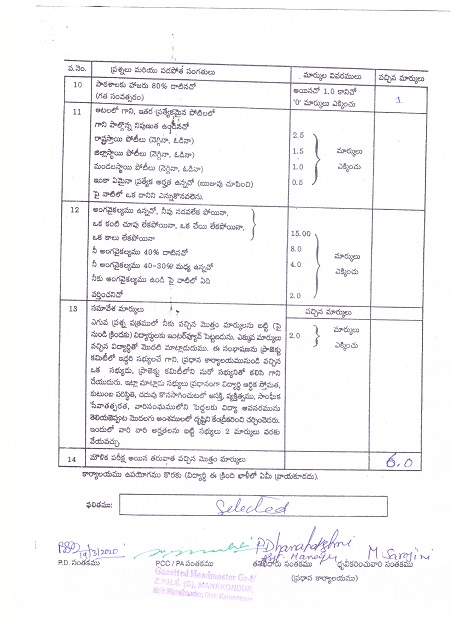 వ.నెం. ప్రశ్నలు మరియు వడపోత సంగతులు మార్కుల వివరములు వచ్చిన మార్కులు
10 పాఠశాలకు హాజరు 80% దాటినచో అయినచో 1.0 కానిచో
(గత సంవత్సరం) '0' మార్కులు ఎక్కించు 1
11 ఆటలలో గాని, ఇతర ప్రత్యేకమైన పోటీలలో
గాని పాల్గొన్న నిపుణత ఉండినచో
రాష్ట్రస్థాయి పోటీలు (నెగ్గినా, ఓడినా) 2.5
జిల్లాస్థాయి పోటీలు (నెగ్గినా, ఓడినా) 1.5 మార్కులు
మండలస్థాయి పోటీలు (నెగ్గినా, ఓడినా) 1.0 ఎక్కించు
ఇంకా ఏమైనా ప్రత్యేక అర్హత ఉన్నచో (ఋజువు చూపించి) 0.5
పై వాటిలో ఒక దానిని ఎన్నుకొనవలెను.
12 అంగవైకల్యము ఉన్నచో, నీవు నడవలేక పోయినా,
ఒక కంటి చూపు లేకపోయినా, ఒక చేయి లేకపోయినా,
ఒక కాలు లేకపోయినా 15.00
నీ అంగవైకల్యము 40% దాటినచో 8.0 మార్కులు
నీ అంగవైకల్యము 40-30% మధ్య ఉన్నచో 4.0 ఎక్కించు
నీకు అంగవైకల్యము ఉండి పై వాటిలో ఏది
వర్తించనిచో 2.0
13 సమావేశ మార్కులు వచ్చిన మార్కులు
ఎగువ ప్రశ్న పత్రములో నీకు వచ్చిన మొత్తం మార్కులను బట్టి (పై
నుండి క్రిందకు) విద్యార్థులకు ఇంటర్వ్యూవ్ పెట్టబడును. ఎక్కువ మార్కులు 2.0 మార్కులు
వచ్చిన విద్యార్థితో మొదటి మాట్లాడుదుము. ఈ సంభాషణను ప్రాజెక్టు ఎక్కించు
కమిటీలో ఇద్దరి సభ్యులచే గాని, ప్రధాన కార్యాలయమునుండి వచ్చిన
ఒక సభ్యుడు, ప్రాజెక్టు కమిటీలోని మరో సభ్యునితో కలిసి గాని
చేయుదురు. ఇట్లా మాట్లాడు సభ్యులు ప్రధానంగా విద్యార్థి ఆర్థిక స్తోమత,
కుటుంబ పరిస్థితి, చదువు కొనసాగించుటలో ఆసక్తి, వ్యక్తిత్వము, సాంఘిక
సేవాతత్పరత, వారిసంఘములోని పెద్దలకు విద్యా అవసరమును
తెలియజెప్పుట మొదలగు అంశములలో దృష్టిని కేంద్రీకరించి చర్చించెదరు.
ఇందులో వారి వారి అర్హతలను బట్టి సభ్యులు 2 మార్కులు వరకు
వేయవచ్చు.
14 మౌళిక పరీక్ష అయిన తరువాత వచ్చిన మొత్తం మార్కులు 6.0
కార్యాలయము ఉపయోగము కొరకు (విద్యార్థి ఈ క్రింది ఖాళీలో ఏమీ వ్రాయకూడదు).
ఫలితము: Selected
19/3/2020 P.Dhanalakshmi M. Sarojini
P.D. సంతకము POO / PA సంతకము తనిఖీదారు సంతకము ధృవీకరించువారి సంతకము
(ప్రధాన కార్యాలయము)
Gazetted Headmaster Gr-II
Z.P.H.S. (C), MANAKONDUR,